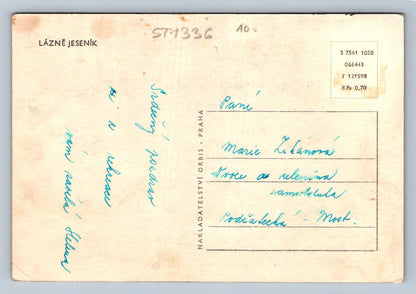 LÁZNĚ JESENÍK
ST1336
10.-
3 7541 1050
D66443
F 121598
Kčs 0,70
Srdečný pozdrav
ze s rekreace
vám zasílá Helena
NAKLADATELSTVÍ ORBIS - PRAHA
Paní
Marie Zikánová
Ovoce a zelenina
samoobsluha
Most.